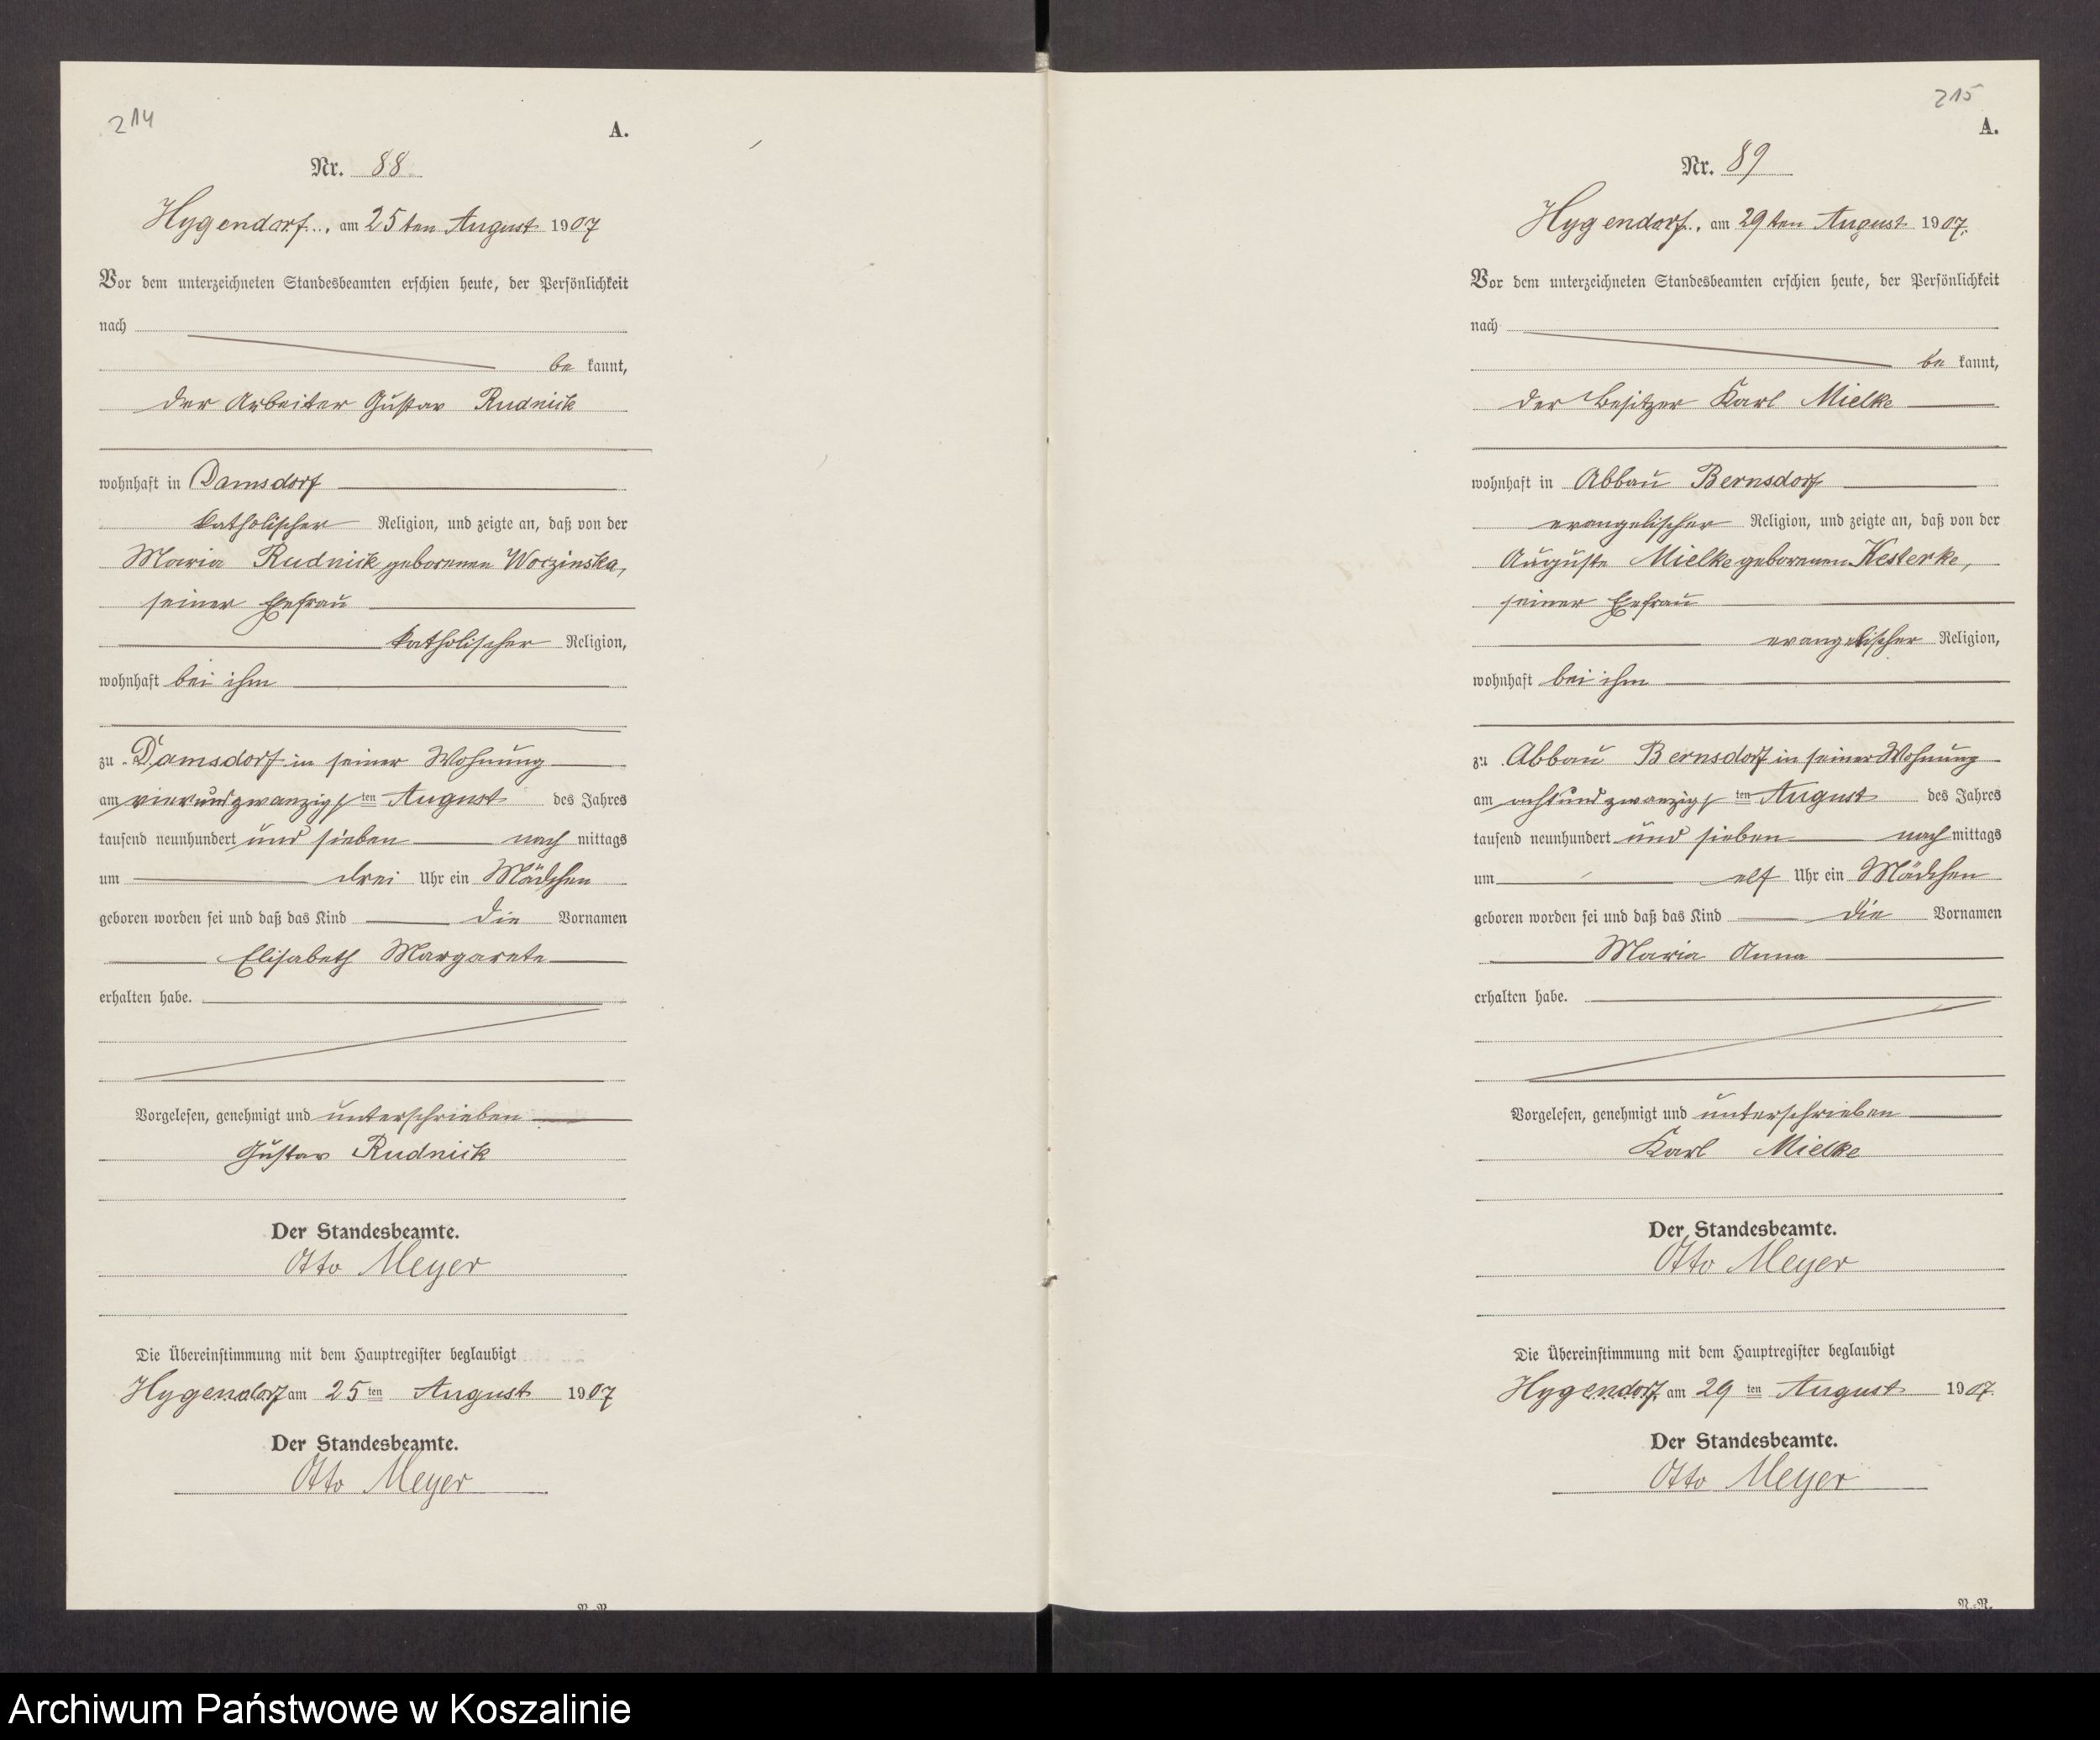 214
A.
Nr. 88
Hygendorf, am 25ten August 1907
Vor dem unterzeichneten Standesbeamten erschien heute, der Persönlichkeit
nach
be kannt,
der Arbeiter Gustav Rudnick
wohnhaft in Damsdorf
katholischer Religion, und zeigte an, daß von der
Maria Rudnick geborenen Woczinska,
seiner Ehefrau
katholischer Religion,
wohnhaft bei ihm
zu Damsdorf in seiner Wohnung
am vierundzwanzigsten August des Jahres
tausend neunhundert und sieben nach mittags
um drei Uhr ein Mädchen
geboren worden sei und daß das Kind die Vornamen
Elisabeth Margarete
erhalten habe.
Vorgelesen, genehmigt und unterschrieben
Gustav Rudnick
Der Standesbeamte.
Otto Meyer
Die Übereinstimmung mit dem Hauptregister beglaubigt
Hygendorf am 25 ten August 1907
Der Standesbeamte.
Otto Meyer
215
A.
Nr. 89
Hygendorf, am 29ten August 1907.
Vor dem unterzeichneten Standesbeamten erschien heute, der Persönlichkeit
nach
be kannt,
der Besitzer Karl Mielke
wohnhaft in Abbau Bernsdorf
evangelischer Religion, und zeigte an, daß von der
Auguste Mielke geborenen Kesterke,
seiner Ehefrau
evangelischer Religion,
wohnhaft bei ihm
zu Abbau Bernsdorf in seiner Wohnung
am achtundzwanzigsten August des Jahres
tausend neunhundert und sieben nach mittags
um elf Uhr ein Mädchen
geboren worden sei und daß das Kind die Vornamen
Maria Anna
erhalten habe.
Vorgelesen, genehmigt und unterschrieben
Karl Mielke
Der Standesbeamte.
Otto Meyer
Die Übereinstimmung mit dem Hauptregister beglaubigt
Hygendorf, am 29 ten August 1907.
Der Standesbeamte.
Otto Meyer
Archiwum Państwowe w Koszalinie